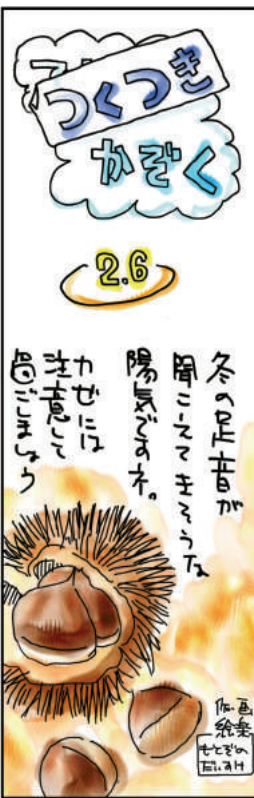 つくつき
かぞく
2.6
冬の足音が
聞こえてきそうな
陽気ですネ。
カゼには
注意して
過ごしましょう
仮画
絵楽
もとぞの
だいすけ